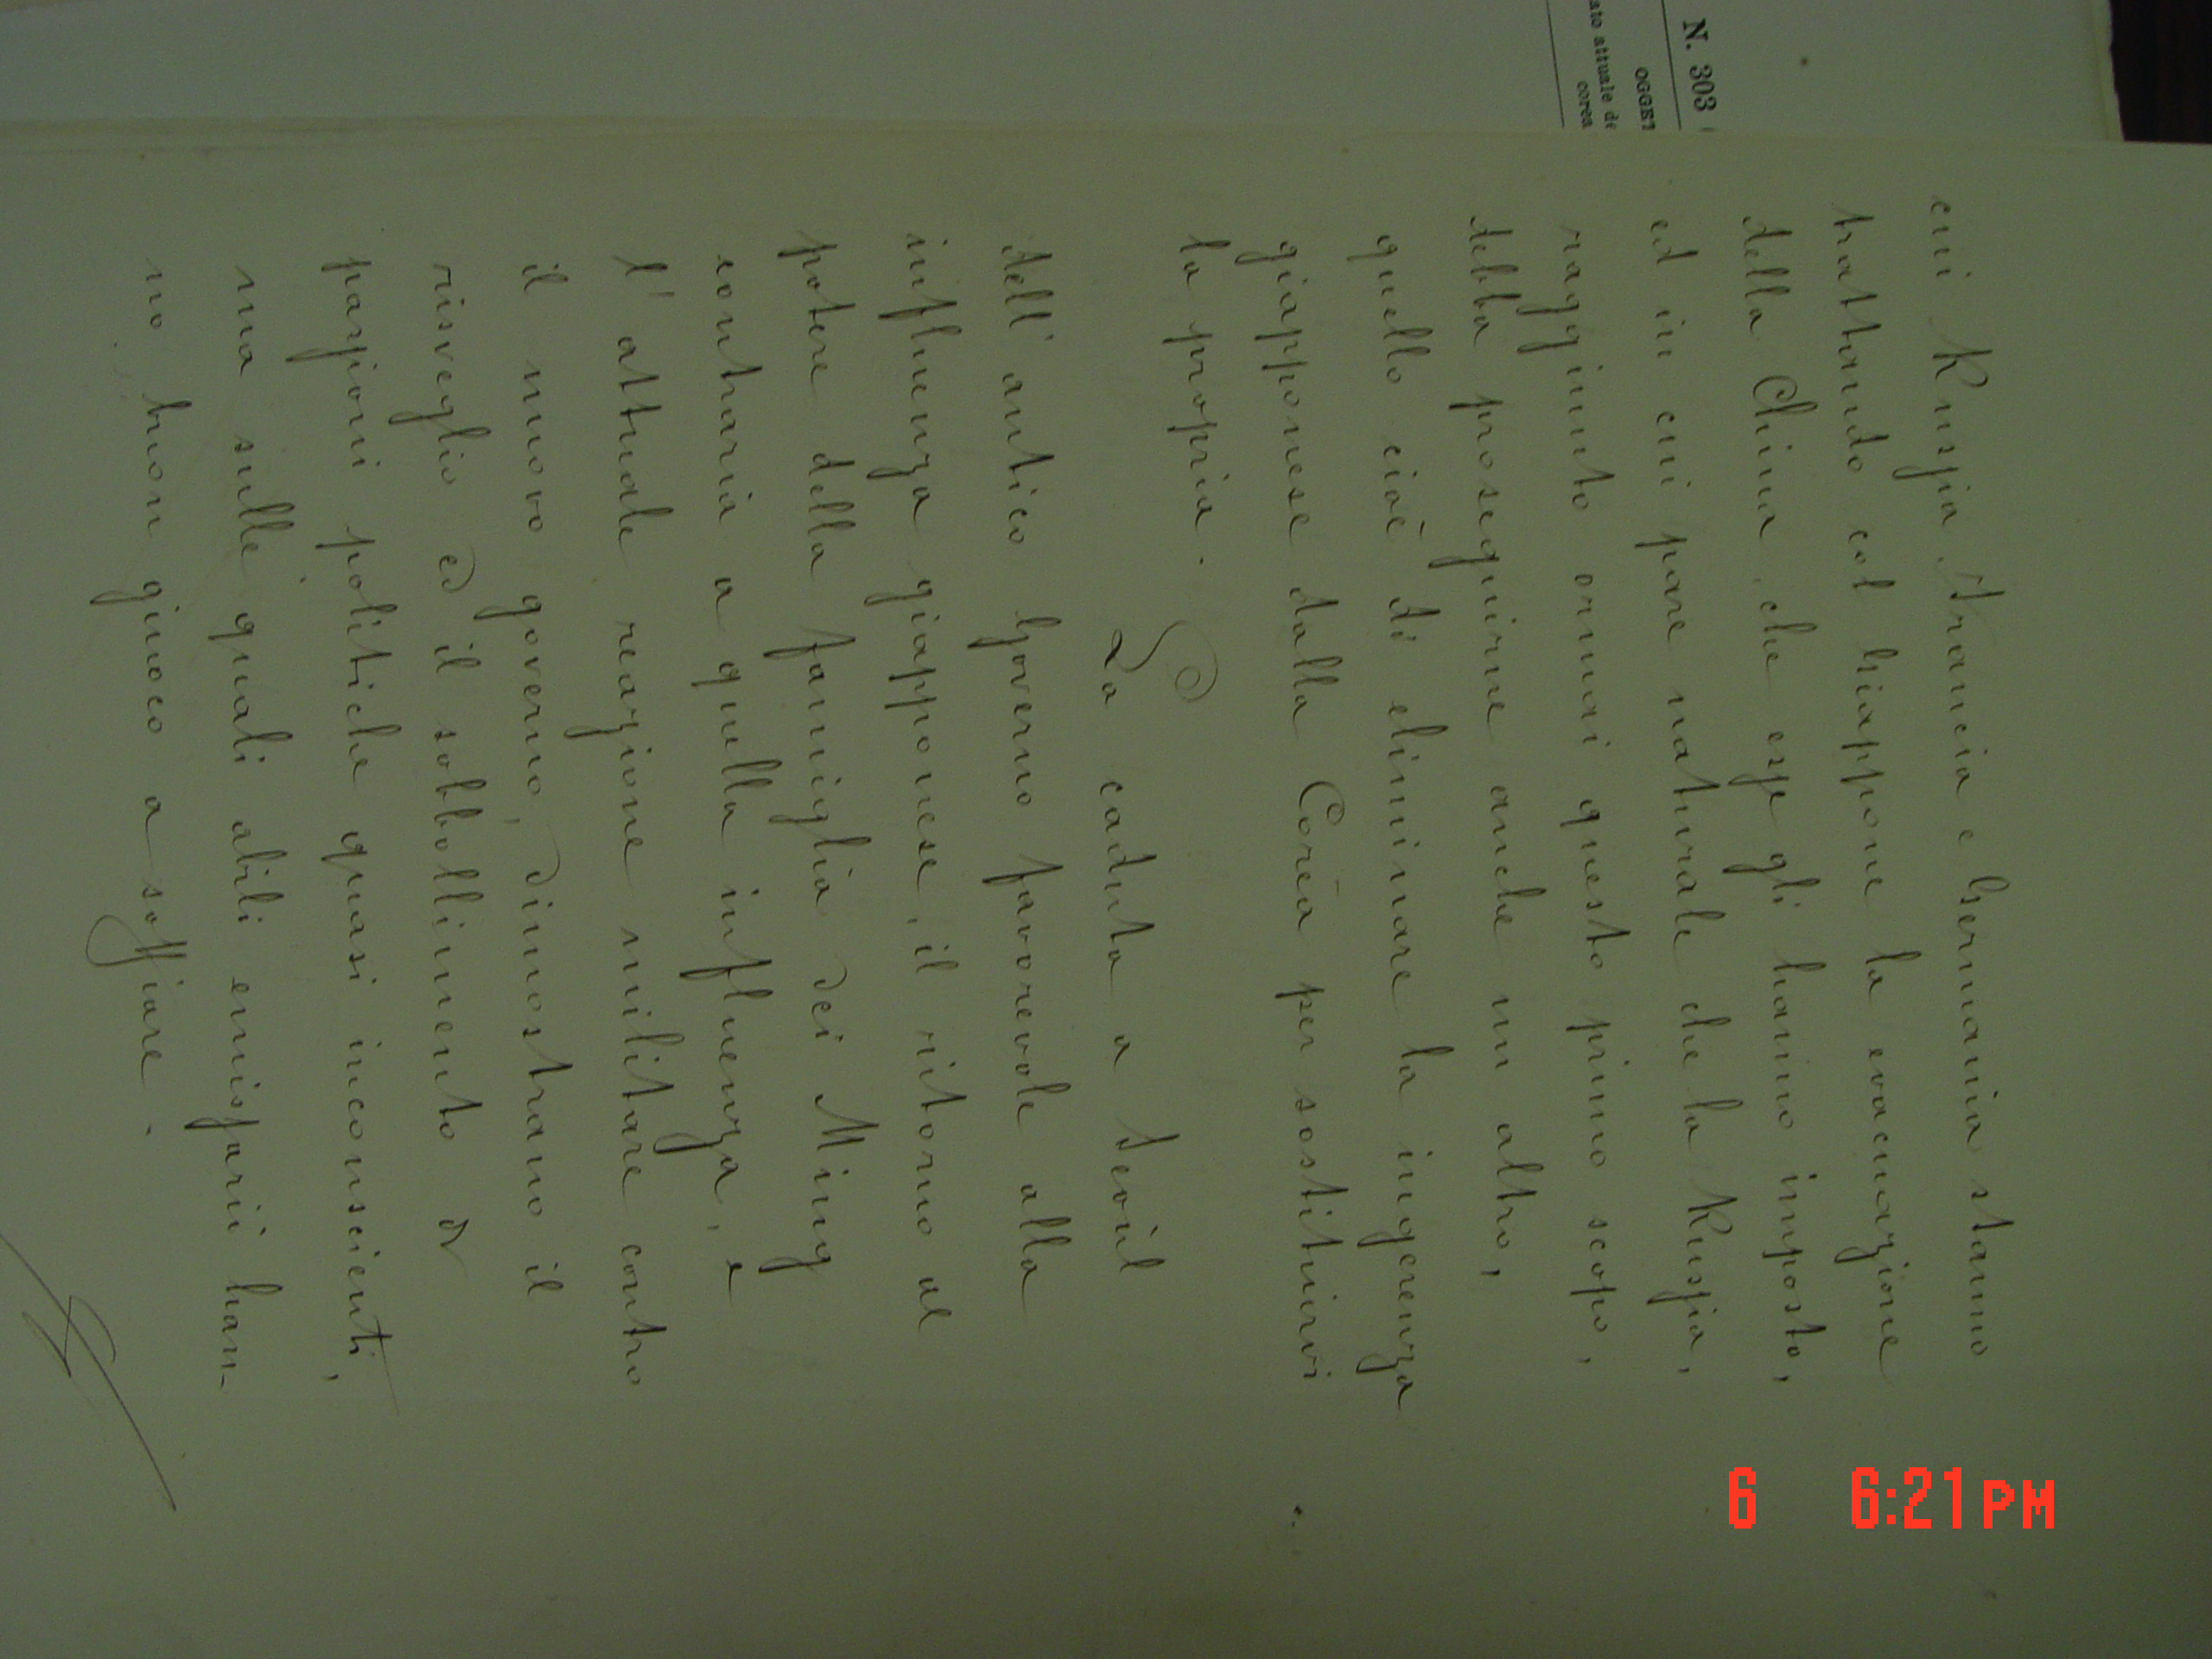 N. 303
OGGET
ato attuale de
corea
cui Russia, Francia e Germania stanno
trattando col Giappone la evacuazione
della China, che esse gli hanno imposto,
ed in cui pare naturale che la Russia,
raggiunto ormai questo primo scopo,
debba proseguirne anche un altro,
quello cioè di eliminare la ingerenza
giapponese dalla Corea per sostituirvi
la propria.
La caduta a Seoul
dell'antico Governo favorevole alla
influenza giapponese, il ritorno al
potere della famiglia dei Ming
contraria a quella influenza, e
l'attuale reazione militare contro
il nuovo governo, dimostrano il
risveglio ed il sobbollimento di
passioni politiche quasi inconscienti,
ma sulle quali abili emissarii han-
no buon giuoco a soffiare.
6 6:21 PM